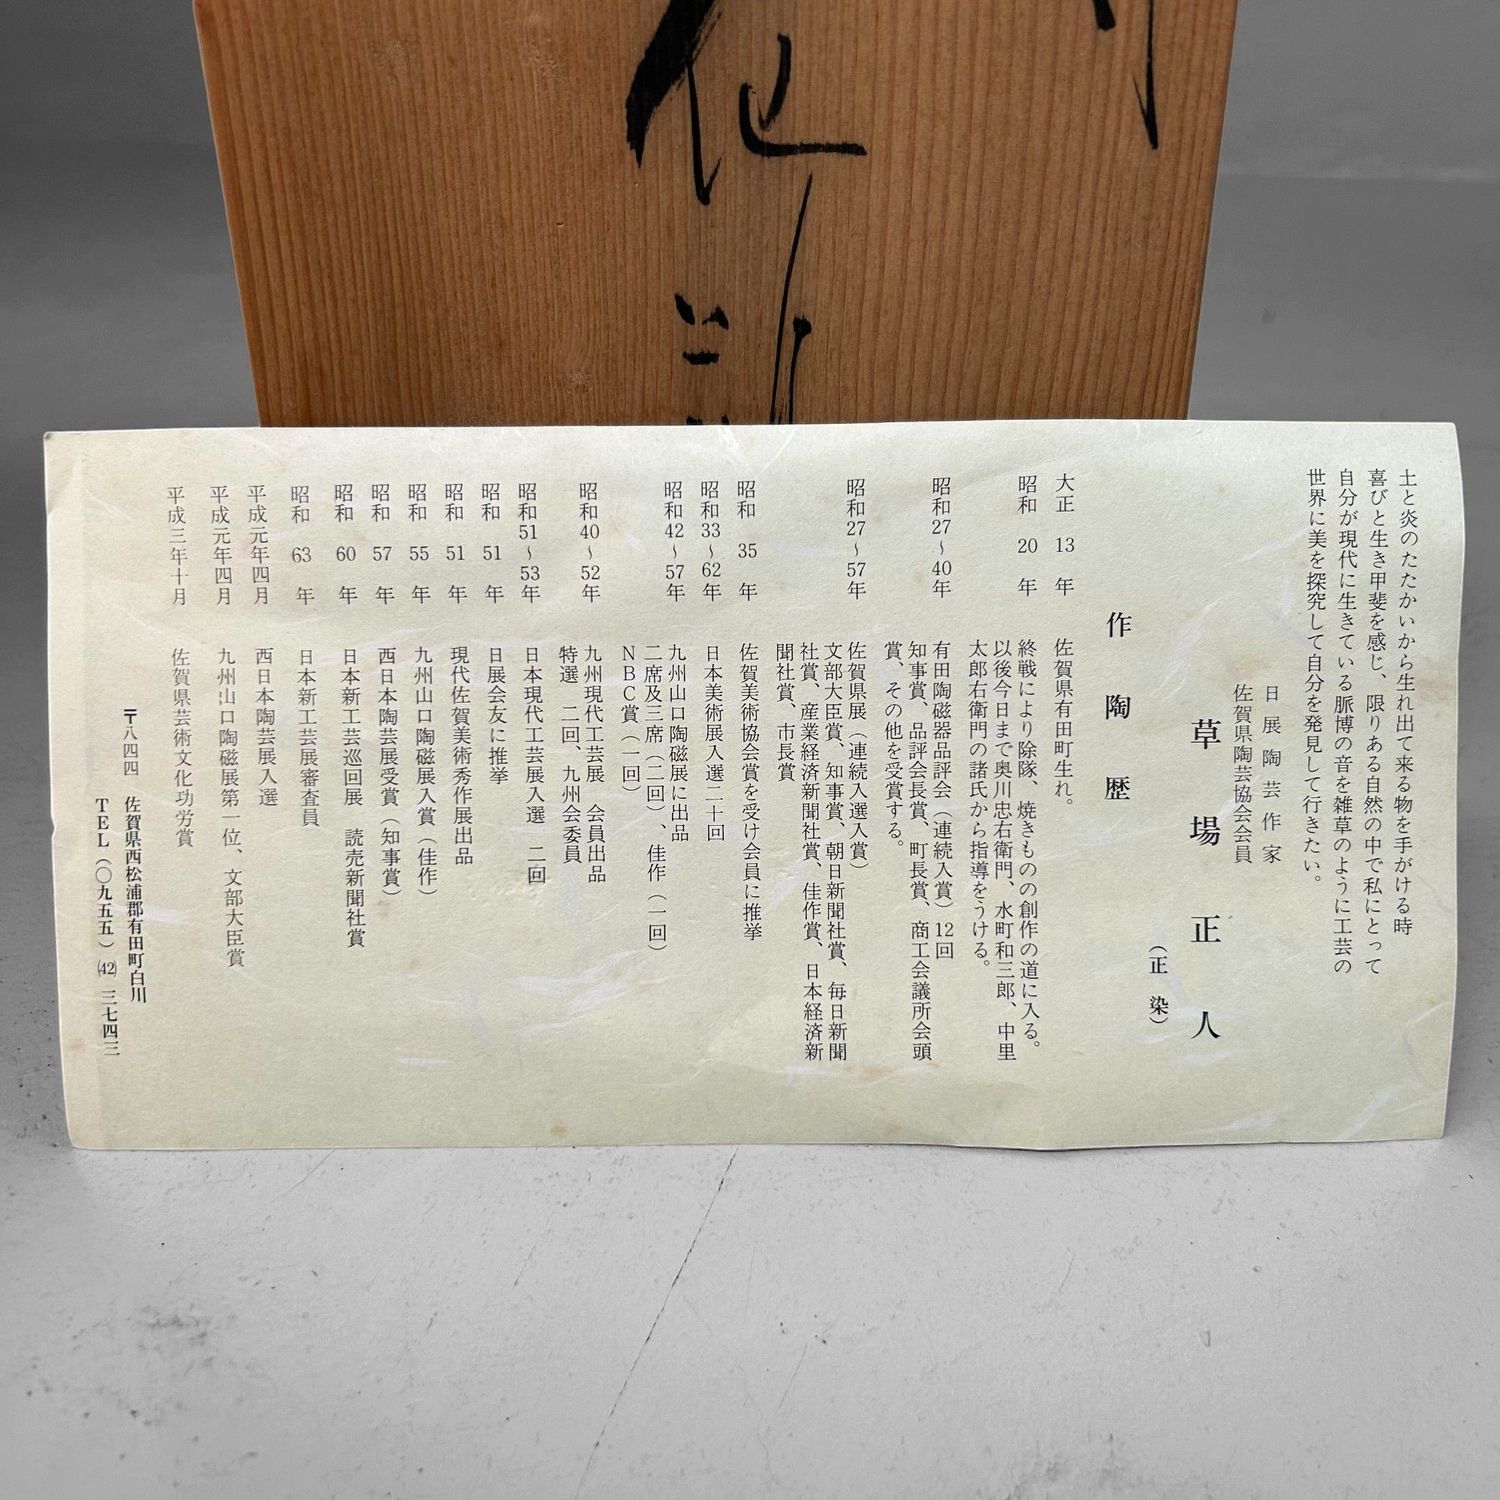 土と炎のたたかいから生れ出て来る物を手がける時
喜びと生き甲斐を感じ、限りある自然の中で私にとって
自分が現代に生きている脈博の音を雑草のように工芸の
世界に美を探究して自分を発見して行きたい。
日展陶芸作家
佐賀県陶芸協会会員
草場正人
(正染)
作陶歴
大正 13 年 佐賀県有田町生れ。
昭和 20 年 終戦により除隊、焼きものの創作の道に入る。
以後今日まで奥川忠右衛門、水町和三郎、中里
太郎右衛門の諸氏から指導をうける。
昭和27~40年 有田陶磁器品評会(連続入賞)12回
知事賞、品評会長賞、町長賞、商工会議所会頭
賞、その他を受賞する。
昭和27~57年 佐賀県展(連続入選入賞)
文部大臣賞、知事賞、朝日新聞社賞、毎日新聞
社賞、産業経済新聞社賞、佳作賞、日本経済新
聞社賞、市長賞
昭和 35 年 佐賀美術協会賞を受け会員に推挙
昭和33~62年 日本美術展入選二十回
昭和42~57年 九州山口陶磁展に出品
二席及三席(二回)、佳作(一回)
NBC賞(一回)
昭和40~52年 九州現代工芸展 会員出品
特選 二回、九州会委員
昭和51~53年 日本現代工芸展入選 二回
昭和 51 年 日展会友に推挙
昭和 51 年 現代佐賀美術秀作展出品
昭和 55 年 九州山口陶磁展入賞(佳作)
昭和 57 年 西日本陶芸展受賞(知事賞)
昭和 60 年 日本新工芸巡回展 読売新聞社賞
昭和 63 年 日本新工芸展審査員
平成元年四月 西日本陶芸展入選
平成元年四月 九州山口陶磁展第一位、文部大臣賞
平成三年十月 佐賀県芸術文化功労賞
〒八四四 佐賀県西松浦郡有田町白川
TEL(〇九五五)(42)三七四三